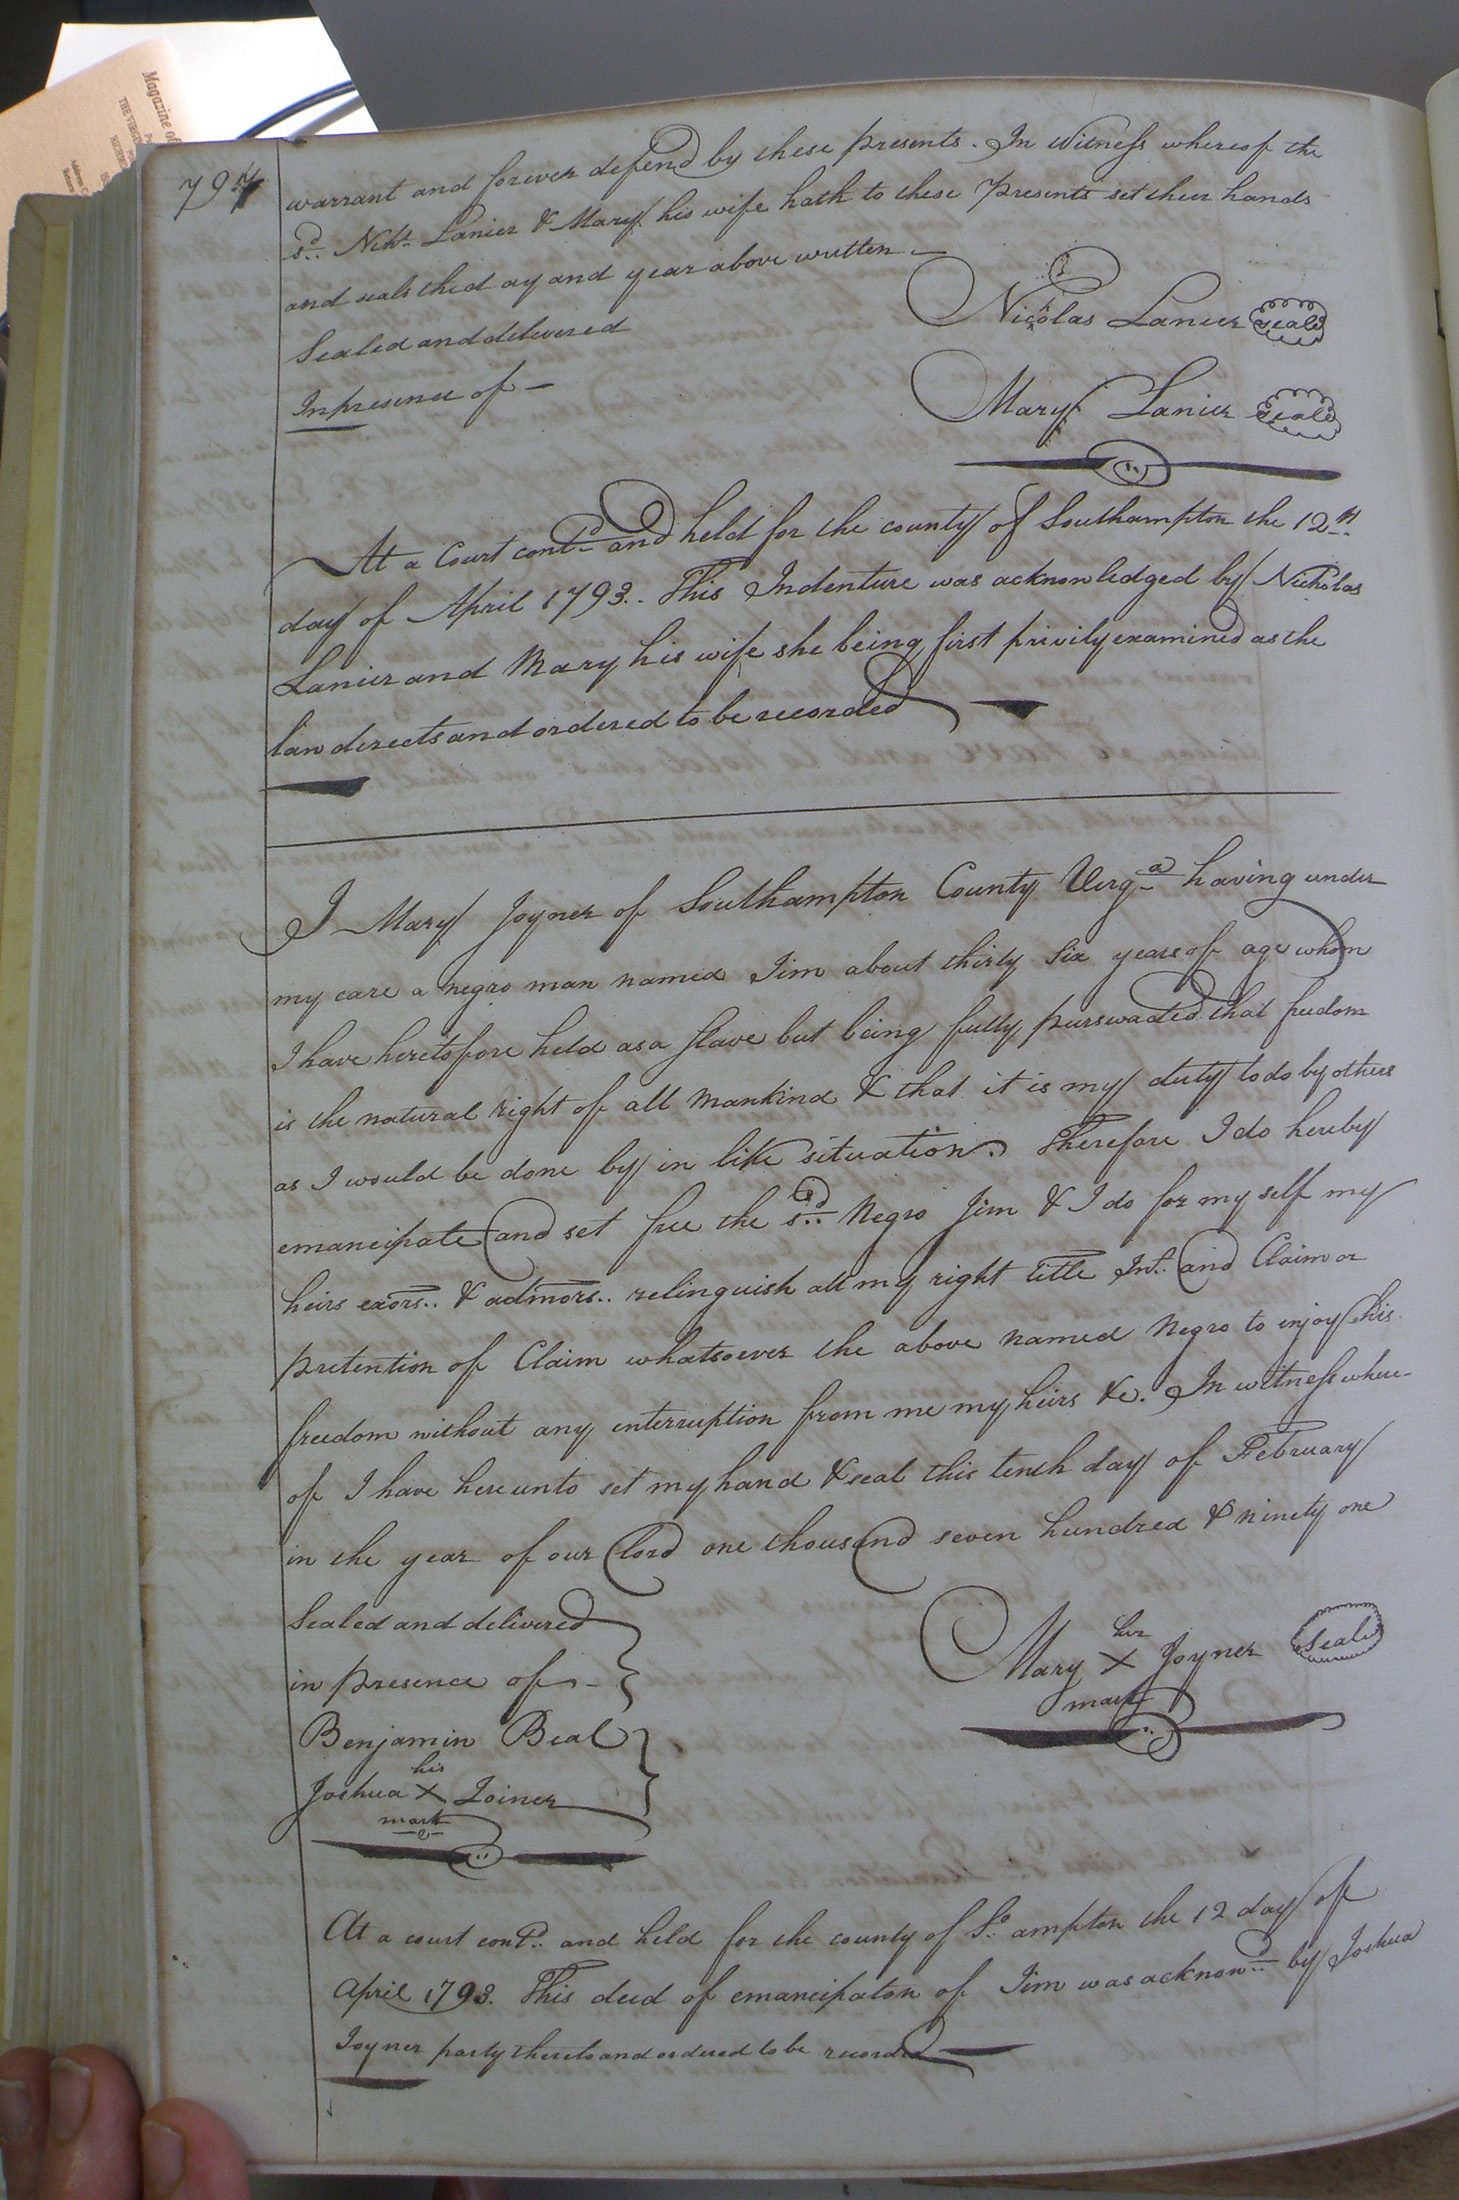 Magazine of
THE VIRGIN
797
warrant and forever defend by these presents. In Witness whereof the
sd. Nichs. Lanier & Mary his wife hath to these presents set their hands
and seals the day and year above written
Sealed and delivered
In presence of
Nicholas Lanier seal
Mary Lanier seal
At a Court contd. and held for the county of Southampton the 12th
day of April 1793. This Indenture was acknowledged by Nicholas
Lanier and Mary his wife she being first privily examined as the
law directs and ordered to be recorded
I Mary Joyner of Southampton County Virga having under
my care a negro man named Jim about thirty six years of age whom
I have heretofore held as a slave but being fully purswaded that freedom
is the natural right of all mankind & that it is my duty to do by others
as I would be done by in like situation. Therefore I do hereby
emancipate and set free the sd. Negro Jim & I do for my self my
heirs exors.. & admors.. relinquish all my right title Int. and Claim or
pretention of Claim whatsoever the above named Negro to injoy his
freedom without any interruption from me my heirs &c. In witness where-
of I have hereunto set my hand & seal this tenth day of February
in the year of our lord one thousand seven hundred & ninety one
Sealed and delivered
in presence of -
Benjamin Beal
his
Joshua X Joiner
mark
her
Mary X Joyner Seal
mark
At a court contd. and held for the county of So. ampton the 12 day of
April 1793. This deed of emancipaton of Jim was acknowd. by Joshua
Joyner party thereto and ordered to be recorded